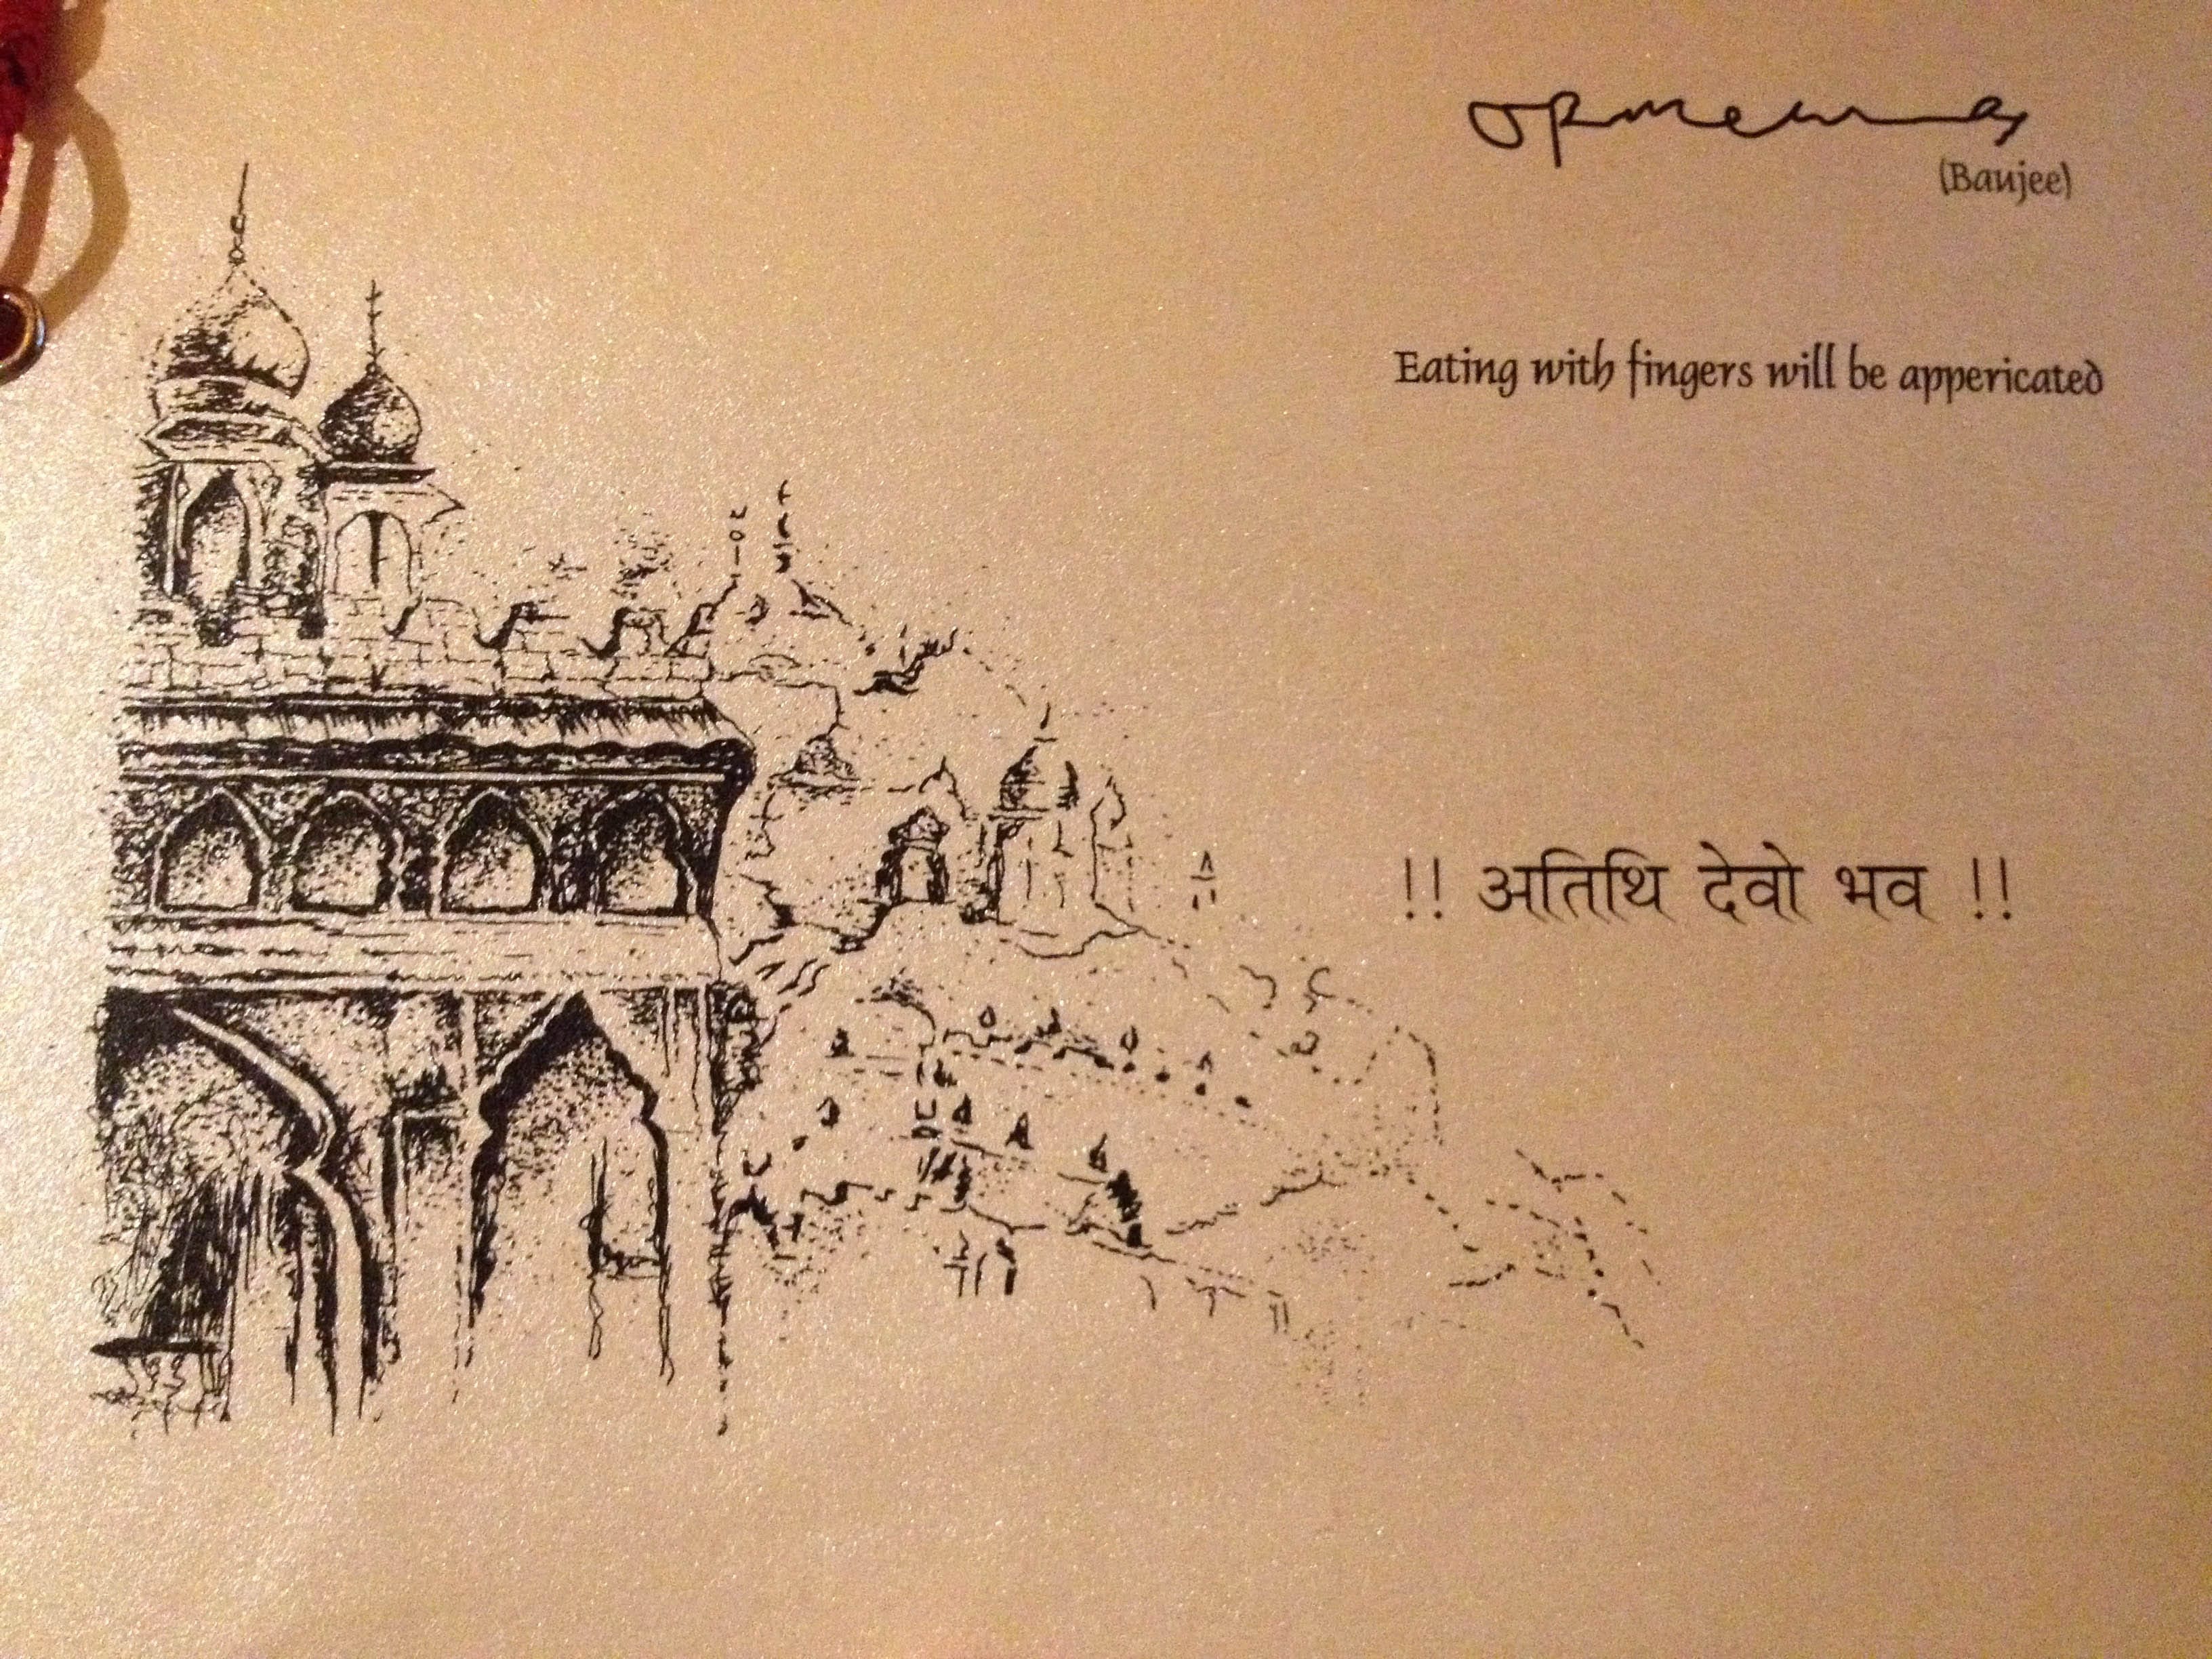 (Baujee)
Eating with fingers will be appericated
!! अतिथि देवो भव !!